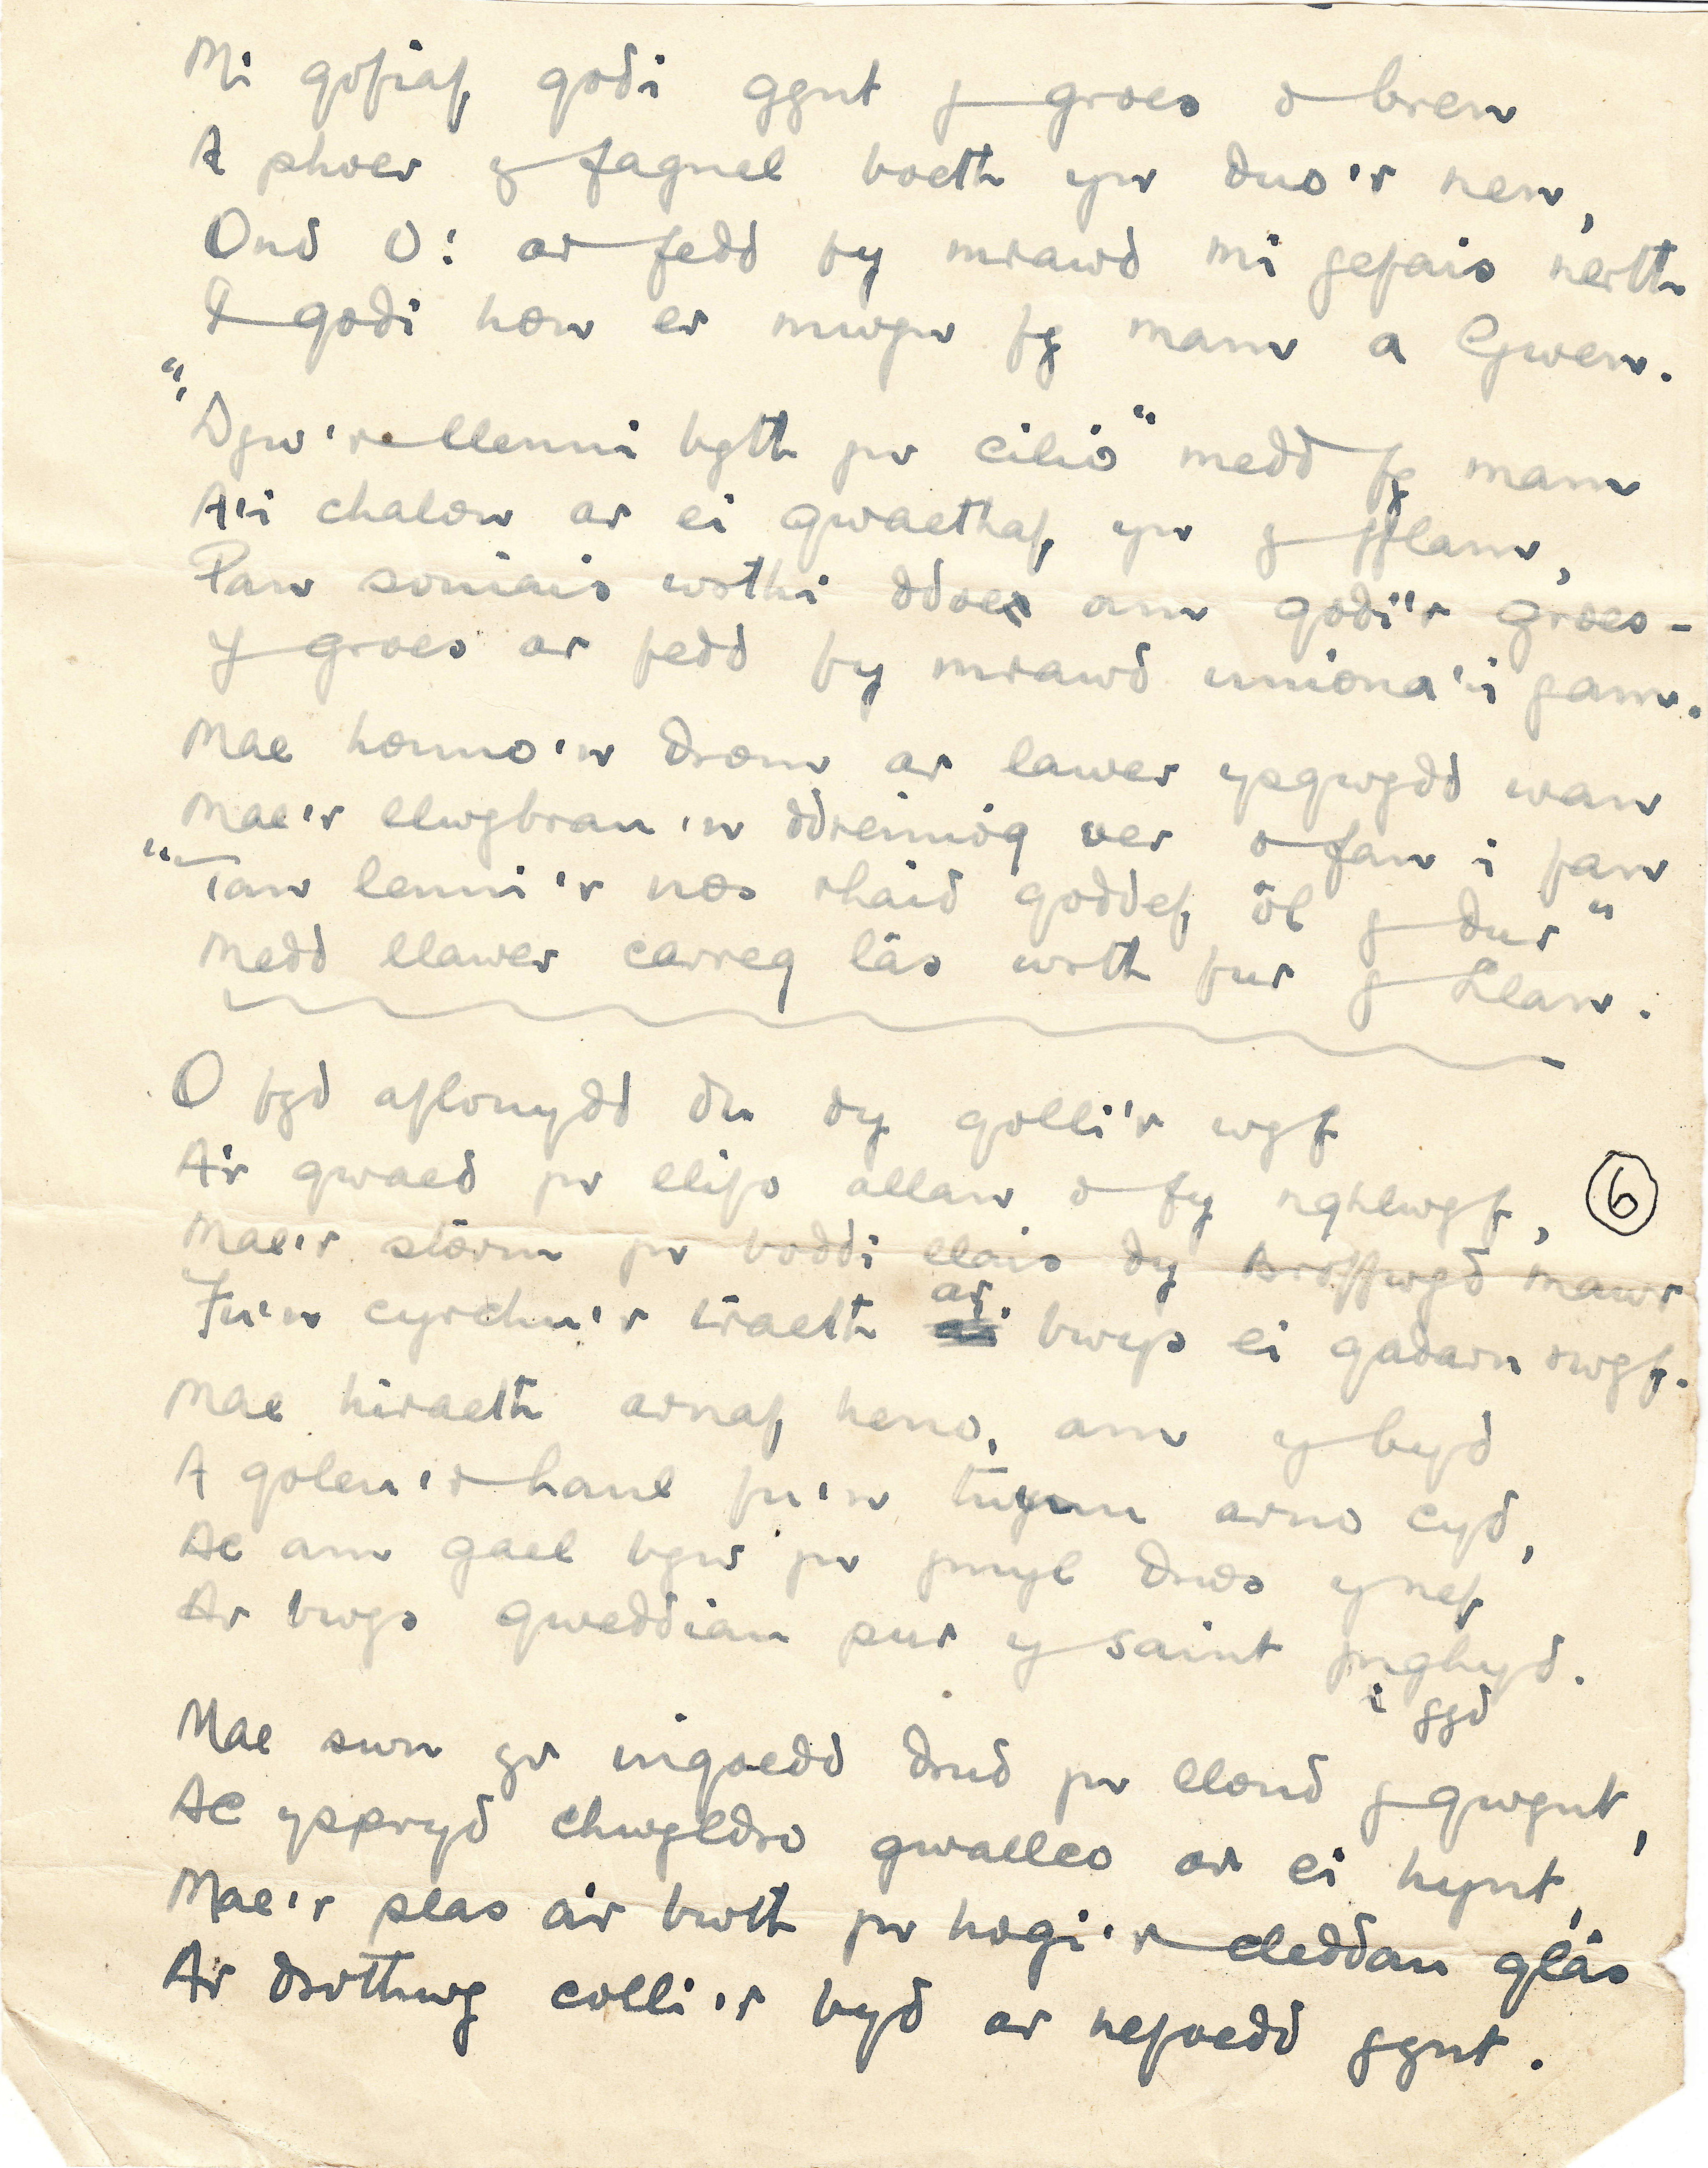 Mi gofiaf godi gynt y groes o bren
A phoer y fagnel boeth yn duo'r nen,
Ond O! ar fedd fy mrawd mi gefais nerth
I godi hon er mwyn fy mam a Gwen.
"Dyw'r llenni byth yn cilio" medd fy mam
A'i chalon ar ei gwaethaf, yn y fflam,
Pan soniais wrthi ddoe am godi'r groes -
Y groes ar fedd fy mrawd uniona'i gam.
Mae honno'n drom ar lawer ysgwydd wan
Mae'r llwybrau'n ddreiniog ver o fan i fan
"Tan lenni'r nos rhaid goddef, ôl y dur"
Medd llawer carreg lâs wrth fur y Llan.
O fyd aflonydd du dy golli'r wyf
A'r gwaed yn llifo allan o fy nghlwyf,
Mae'r storm yn boddi llais dy Broffwyd mawr
Fu'n cyrchu'r traeth ar bwys ei gadarn rwyf.
Mae hiraeth arnaf heno, am y byd
A goleu'r haul fu'n twynnu arno cyd,
Ac am gael byw yn ymyl drws y nef
Ar bwys gweddiau pur y saint ynghyd.
i gyd
Mae swn yr ingoedd drud yn llond y gwynt,
Ac yspryd chwyldro gwaelles ar ei hynt,
Mae'r plas a'r bwth yn hogi'r cleddau glâs
Ar drothwy colli'r byd ar nefoedd gynt.
6